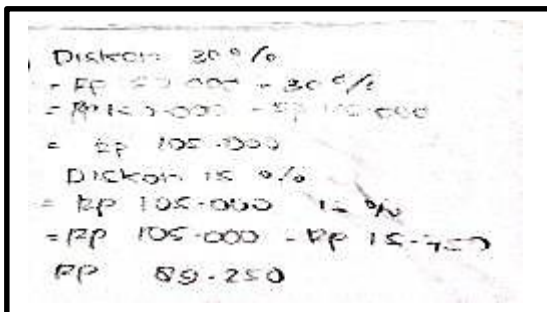 Diskon 30%
= Rp 000 - 30%
= Rp 000 - Rp 000
= Rp 105.000
Diskon 15 %
= Rp 105.000 15 %
= Rp 105.000 - Rp 15.750
Rp 89.250